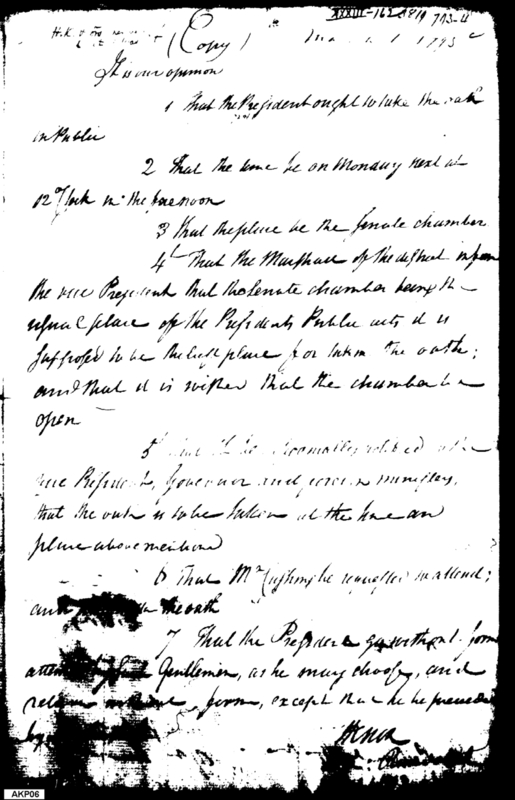 XXXIII-162
(Copy) 1793
It is our opinion
1 That the President ought to take the oath
in Public
2 That the time be on Monday next at
12 oClock in the forenoon
3 That the place be the Senate chamber
4 That the Marshall of the district inform
the vice President that the Senate chamber being the
usual place of the Presidents Public acts it is
supposed to be the best place for the oath;
and that it is wished that the chamber be
open
5 That it be notified
vice President, Governor and foreign ministers,
that the oath is to be taken at the time and
place above mentioned
6 That Mr Cushing be requested to attend;
and the oath
7 That the President go without form
attended by such Gentlemen, as he may choose, and
return without form, except that he be preceded
by
Knox
AKP06